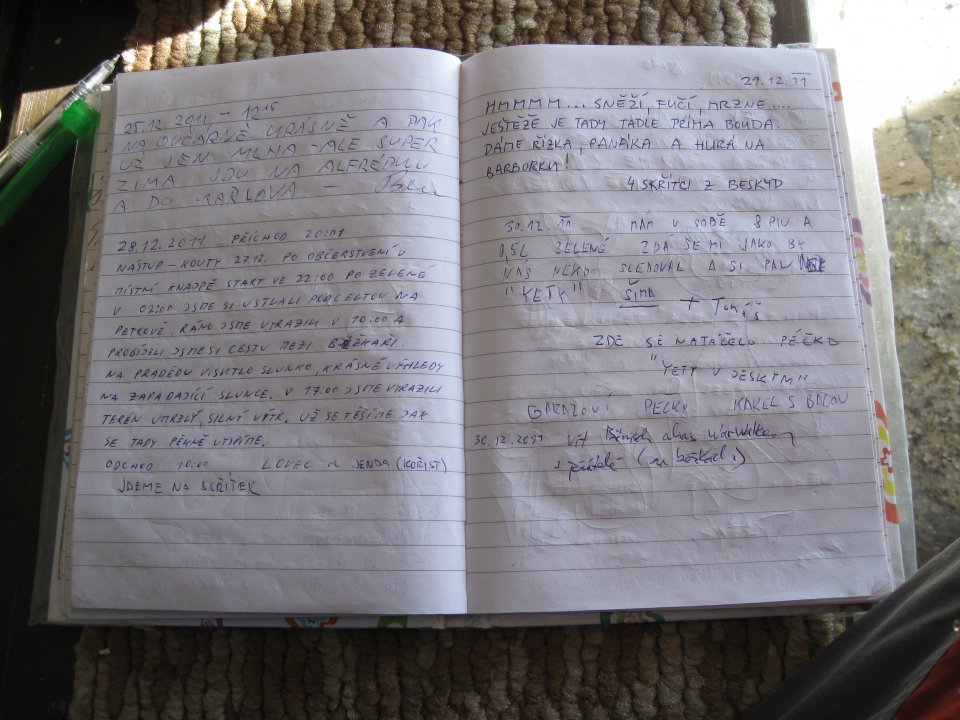 25.12.2011 - 1215
NA OVČÁRNĚ KRÁSNĚ A PAK
UŽ JEN MLHA - ALE SUPER
ZIMA JDU NA ALFRÉDKU
A DO KARLOVA -
28.12.2011 PŘÍCHOD 20:01
NÁSTUP - KOUTY 27.12. PO OBČERSTVENÍ V
MÍSTNÍ KNAJPĚ START VE 22:00 PO ZELENÉ
V 02:00 JSME SI USTLALI POD CELTOU NA
PETROVĚ. RÁNO JSME VYRAZILI V 10:00 A
PROBÍJELI JSME SI CESTU MEZI BĚŽKAŘI
NA PRADĚDU VYSVITLO SLUNKO, KRÁSNÉ VÝHLEDY
NA ZAPADAJÍCÍ SLUNCE. V 17.00 JSME VYRAZILI
TERÉN UMRZLÝ, SILNÝ VÍTR. UŽ SE TĚŠÍME JAK
SE TADY PĚKNĚ VYSPÍME.
ODCHOD 10:00 LOVEC a JENDA (KOŘIST)
JDEME NA SKŘÍTEK
29.12.11
HMMMM... SNĚŽÍ, FUČÍ, MRZNE....
JEŠTĚŽE JE TADY TADLE PRIMA BOUDA.
DÁME ŘÍZKA, PANÁKA A HURÁ NA
BARBORKU!
4 SKŘÍTCI Z BESKYD
30.12.11 MÁM V SOBĚ 8 PIV A
0,5L ZELENÉ ZDÁ SE MI JAKO BY
NÁS NĚKDO SLEDOVAL A SI PAN
"YETY" ŠÍMA + Tomáš
ZDE SE NATÁČELO PÉČKO
"YETY V JESKYNI"
GARÁŽOVÍ PÉČKO KAREL S BANDOU
30.12.2011 Vít alias
s přáteli (na běžkách)